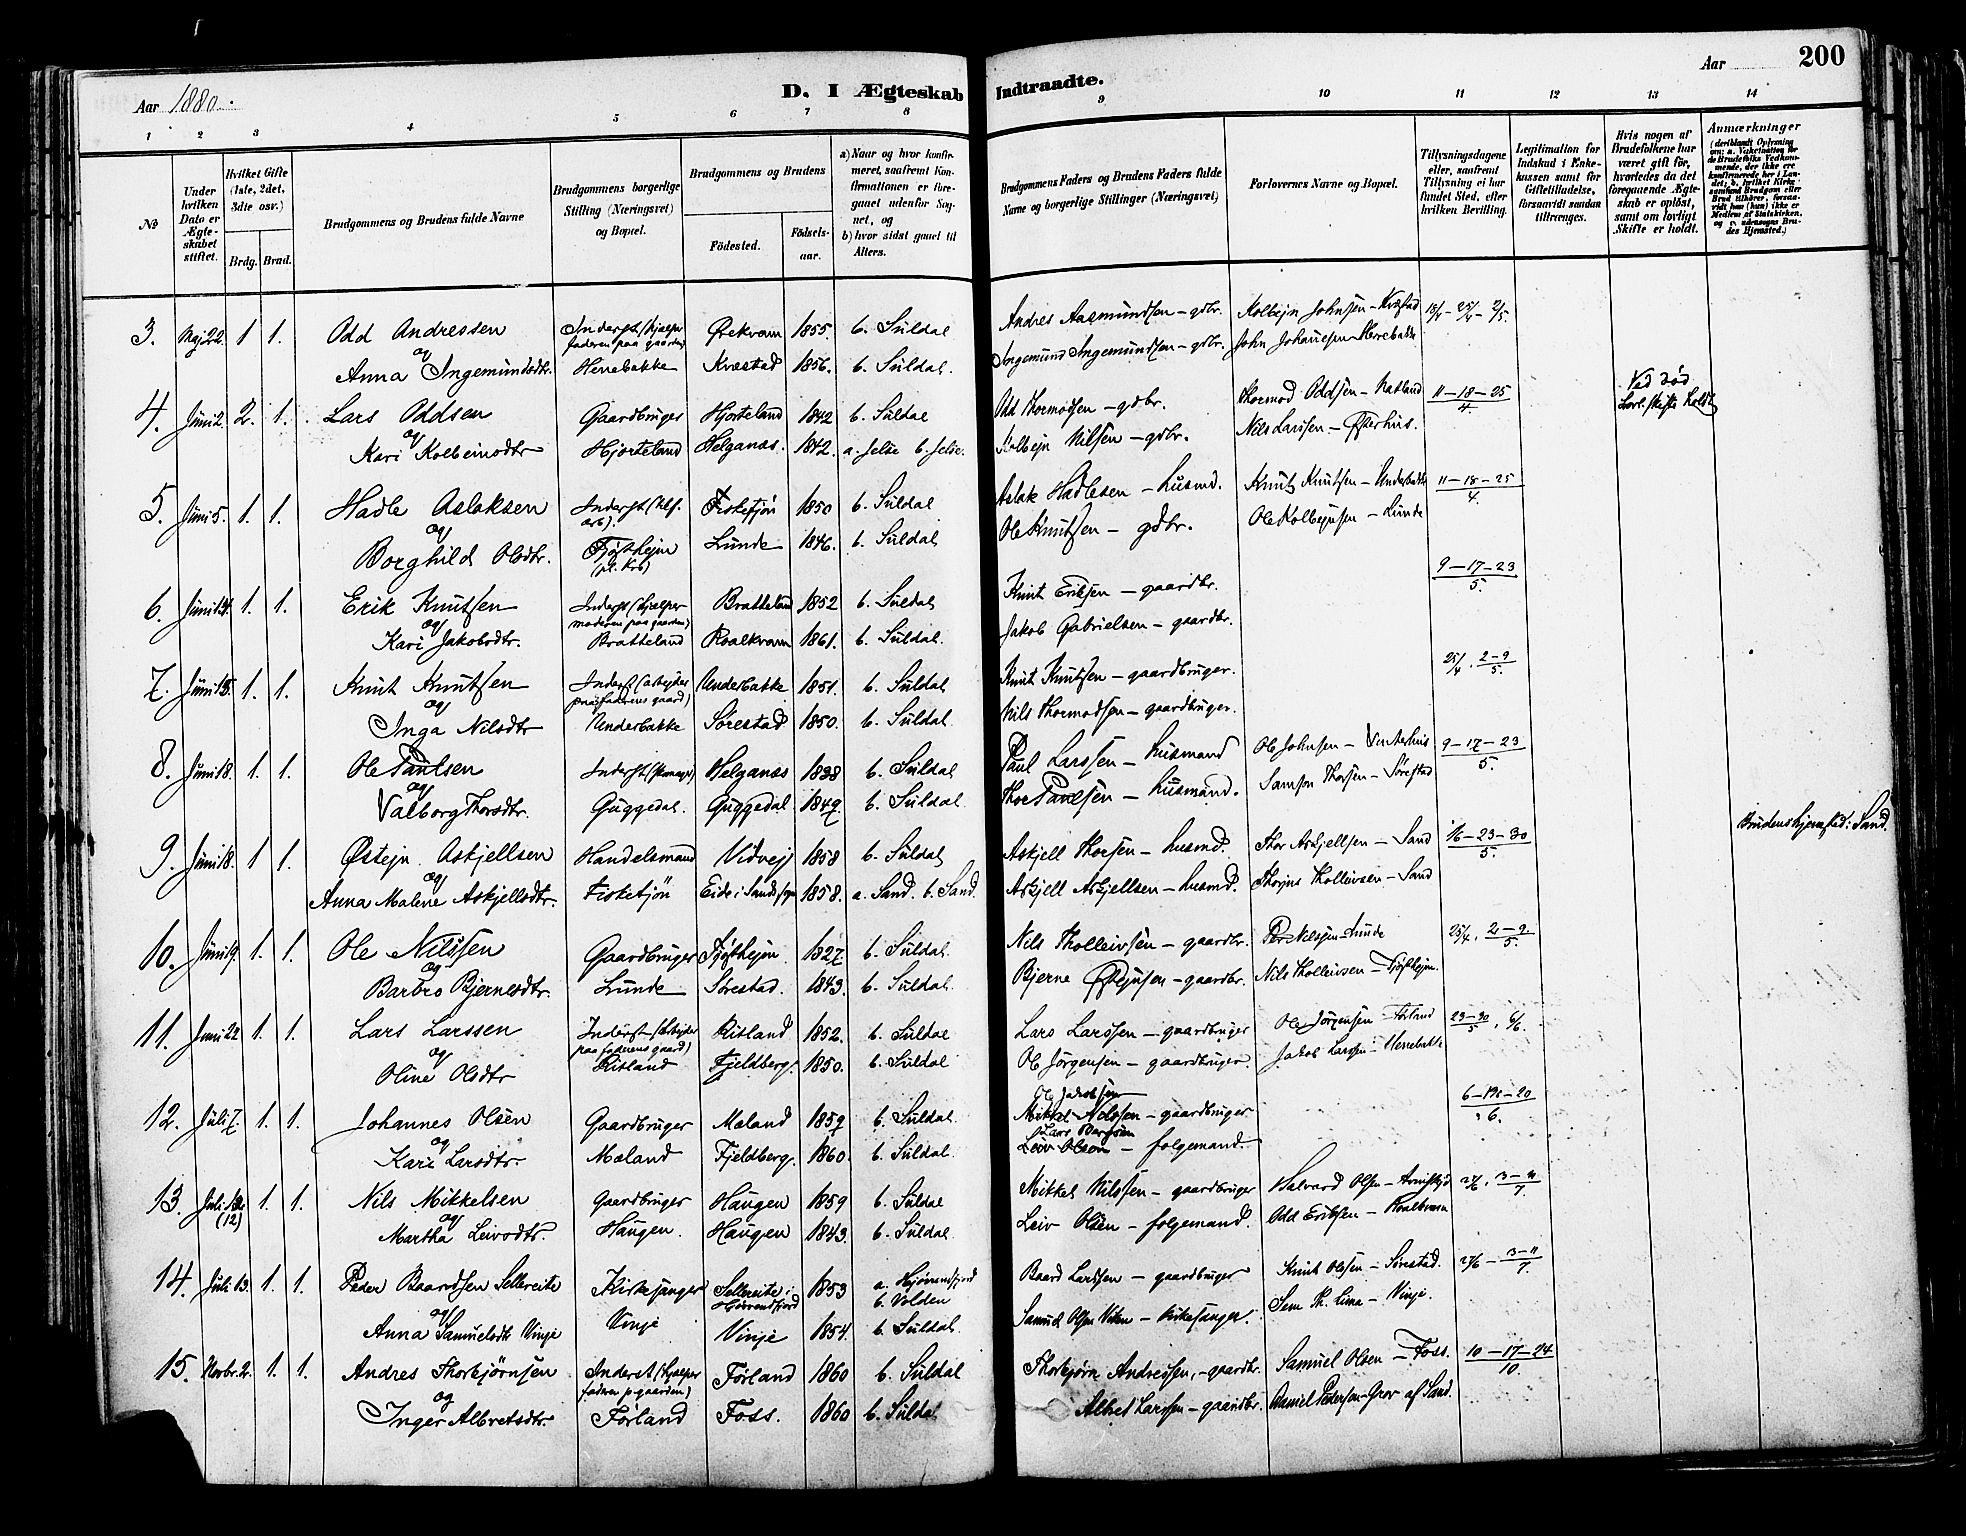 Aar 1880.
D. I Ægteskab Indtraadte.
Aar
200
1 2 3 4 5 6 7 8 9 10 11 12 13 14
№
Under hvilken Dato er Ægteskabet stiftet.
Hvilket Gifte (1ste, 2det, 3die osv.)
Brdg. Brud.
Brudgommens og Brudens fulde Navne
Brudgommens borgerlige Stilling (Næringsvei) og Bopæl.
Brudgommens og Brudens
Födested. Födselsaar.
a) Naar og hvor konfirmeret, saafremt Konfirmationen er foregaaet udenfor Sognet, og
b) hvor sidst gaaet til Alters.
Brudgommens Faders og Brudens Faders fulde Navne og borgerlige Stillinger (Næringsvei)
Forlovernes Navne og Bopæl.
Tillysningsdagene eller, saafremt Tillysning ei har fundet Sted, efter hvilken Bevilling.
Legitimation for Indskud i Enkekassen samt for Giftetilladelse, forsaavidt saadan tiltrænges.
Hvis nogen af Brudefolkene har været gift för, hvorledes da det foregaaende Ægteskab er oplöst, samt om lovligt Skifte er holdt.
Anmærkninger
3. Maj 22. 1 1. Odd Andressen Inderst (hjælper faderen paa gaarden) Qvekvam 1855. b. Suldal Andres Aasmundsen – gdbr. Kolbejn Johnsen – Kvæstad 18/4 – 25/4 – 2/5.
og Anna Ingemundsdtr. Herrebakke Kvæstad 1856. b. Suldal. Ingemund Ingemundsen – gdbr. John Johannesen Herrebakke
4. Juni 2. 2. 1. Lars Oddsen Gaardbruger Hjorteland 1842 b. Suldal Odd Thormodsen – gdbr. Thormod Oddsen – Natland 11–18–25/4 Ved død Lovl. skifte holdt
og Kari Kolbeinsdtr Hjorteland Helganæs. 1842. a. Jelse b. Jelse. Kolbejn Nilsen – gdbr. Nils Larssen – Østerhus.
5. Juni 5. 1. 1. Hadle Aslaksen Inderst Fisketjön 1850 b. Suldal Aslak Hadlesen – husmd. Knut Knutsen – Nenderbakke 11–18–25/4.
og Borghild Olsdtr. Tjøstheim Lunde 1846. b. Suldal Ole Knutsen – gdbr. Ole Kolbejnsen – Lunde
6. Juni 14. 1. 1. Erik Knutsen Inderst (hjælper moderen paa gaarden) Bratteland 1852 b. Suldal Knut Eriksen – gaardbr. 9–17–23/5.
og Kari Jakobsdtr. Bratteland Roalkvam 1861. b. Suldal. Jakob Gabrielsen – gaardbr.
7. Juni 15. 1. 1. Knut Knutsen Inderst (arbejder paa faderens gaard) Nenderbakke 1851. b. Suldal Knut Knutsen – gaardbruger. 25/4. 2–9/5.
og Inga Nilsdtr Nenderbakke Sörestad 1850. b. Suldal. Nils Thormodsen – gaardbruger.
8. Juni 18. 1. 1. Ole Paulsen Inderst Helganæs 1838 b. Suldal Paul Larssen – husmand Ole Johnsen – Vinterhus 9–17–23/5.
og Valborg Thorsdtr. Guggedal. Guggedal 1849 b. Suldal. Thor Paulsen – husmand. Samson Thorsen – Sörestad
9. Juni 18. 1 1. Østejn Askjellsen Handelsmand Vidvej 1858 b. Suldal Askjell Thorsen – husmd. Thor Askjellsen – Sand 16–23–30/5. Brudens hjemsted: Sand.
og Anna Malene Askjellsdtr. Fisketjön Eide i Sands sogn 1858. a. Sand. b. Sand. Askjell Askjellsen – husmd. Tholleivsen – Sand
10. Juni 19. 1. 1. Ole Nilssen Gaardbruger Tjøsthejm 1827. b. Suldal. Nils Tholleivsen – gaardbr. Per Nilssen – Lunde 25/4. 2–9/5.
og Barbro Bjernesdtr. Lunde Sörestad. 1843. b. Suldal. Bjerne Østejnsen – gaardbr. Nils Tholleivsen – Tjøsthejm.
11. Juni 22. 1. 1. Lars Larssen Inderst (arbejder paa faderens gaard) Ritland 1852. b. Suldal Lars Larssen – gaardbruger Ole Jörgensen – Förland 23–30/5. 6/6.
og Oline Olsdtr Ritland Fjeldberg. 1850. b. Suldal. Ole Jörgensen – gaardbruger. Jakob Larssen – Herrebakke
12. Juli 7. 1. 1. Johannes Olsen Gaardbruger Mæland 1859 b. Suldal. Ole Jakobsen Mikkel Nilssen – gaardbruger.
og Kari Larsdtr. Mæland Fjeldberg. 1860. b. Suldal. Leiv Olsen – folgemand.
13. Juli (12) 1. 1. Nils Mikkelsen Gaardbruger Haugen 1859 b. Suldal Mikkel Nilssen – gaardbruger Halvard Olsen 27/6. 3–11/7.
og Martha Leivsdtr. Haugen. Haugen 1843. b. Suldal. Leiv Olsen – folgemand. Odd Eriksen – Roalkvam
14. Juli 13. 1. 1. Peder Baardsen Sellereite Kirkesanger Sellereite i Hjörendfjord 1853 a. Hjörendfjord b. Volden Baard Larssen – gaardbruger Knut Olsen – Sörestad. 27/6 – 3–11/7.
og Anna Samuelsdtr Vinje Vinje Vinje 1854. b. Suldal. Samuel Olsen Vinje – kirkesanger. Sem Th. Lima – Vinje.
15. Novbr. 2. 1. 1. Andres Thorbjörnsen Inderst (hjælper faderen p. gaarden) Förland 1860 b. Suldal Thorbjörn Andressen, – gaardbr. Samuel Olsen – Foss. 10–17–24/10.
og Inger Albretsdtr. Förland Foss. 1860 b. Suldal Albret Larssen – gaardbr. Daniel Pedersen – Grov af Sand.